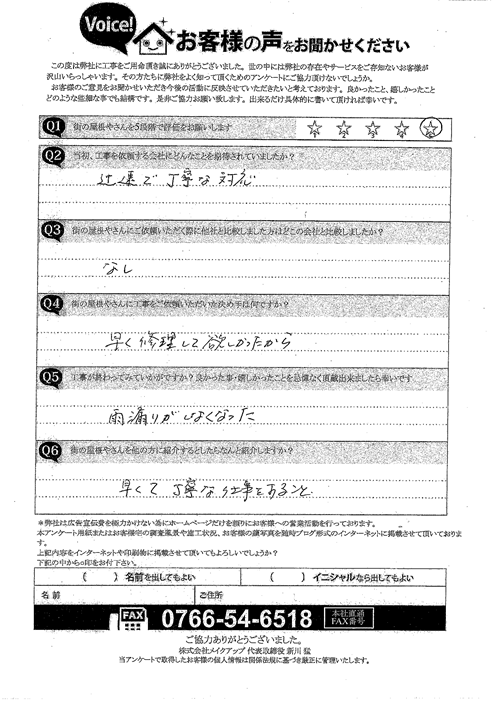 Voice!
お客様の声をお聞かせください
この度は弊社に工事をご用命頂き誠にありがとうございました。世の中には弊社の存在やサービスをご存知ないお客様が
沢山いらっしゃいます。その方たちに弊社をよく知って頂くためのアンケートにご協力頂けないでしょうか。
お客様のご意見をお聞かせいただき今後の活動に反映させていただきたいと考えております。良かったこと、嬉しかったこと
どのような些細な事でも結構です。是非ご協力お願い致します。出来るだけ具体的に書いて頂ければ幸いです。
Q1 街の屋根やさんを5段階で評価をお願いします
Q2 当初、工事を依頼する会社にどんなことを期待されていましたか?
迅速で丁寧な対応
Q3 街の屋根やさんにご依頼いただく際に他社と比較しました方はどこの会社と比較しましたか?
なし
Q4 街の屋根やさんに工事をご依頼いただいた決め手は何ですか?
早く修理して欲しかったから
Q5 工事が終わってみていかがですか?良かった事・嬉しかったことを忌憚なく頂戴出来ましたら幸いです
雨漏りがしなくなった
Q6 街の屋根やさんを他の方に紹介するとしたらなんと紹介しますか?
早くて丁寧な仕事であること
*弊社は広告宣伝費を極力かけない為にホームページだけを頼りにお客様への営業活動を行っております。
本アンケート用紙またはお客様宅の調査風景や施工状況、お客様の顔写真を随時ブログ形式のインターネットに掲載させて頂いております。
上記内容をインターネットや印刷物に掲載させて頂いてもよろしいでしょうか?
下記の中から○印をお付下さい。
( ) 名前を出してもよい ( ) イニシャルなら出してもよい
名前 ご住所
FAX 0766-54-6518 本社直通 FAX番号
ご協力ありがとうございました。
株式会社メイクアップ 代表取締役 新川 猛
当アンケートで取得したお客様の個人情報は関係法規に基づき厳正に管理いたします。